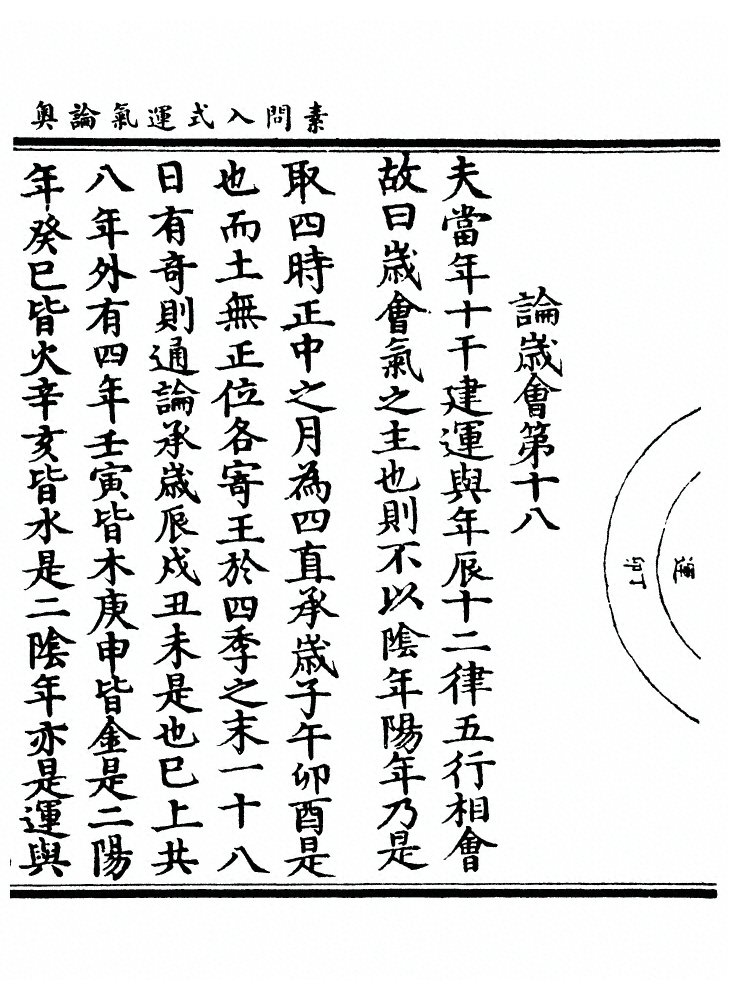 素問入式運氣論奥
運
丁卯
論歲會第十八
夫當年十干建運與年辰十二律五行相會
故曰歲會氣之主也則不以陰年陽年乃是
取四時正中之月為四直承歲子午卯酉是
也而土無正位各寄王於四季之末一十八
日有奇則通論承歲辰戌丑未是也巳上共
八年外有四年壬寅皆木庚申皆金是二陽
年癸巳皆火辛亥皆水是二陰年亦是運與